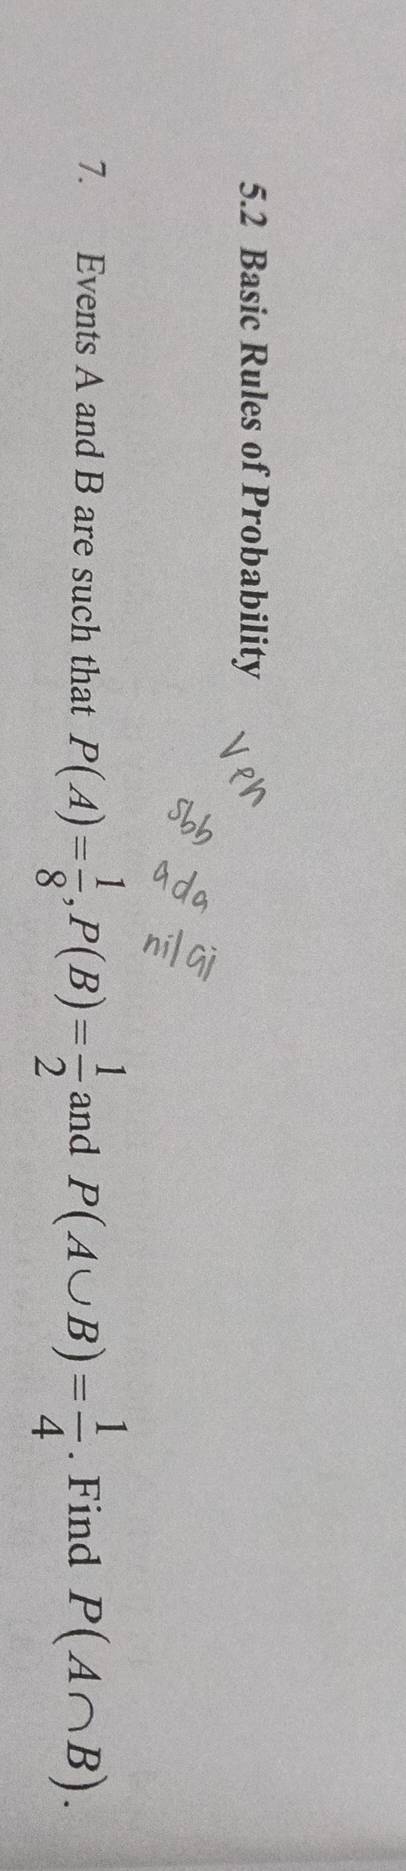 5.2 Basic Rules of Probability
Ven
sbb
ada
nilai
7. Events A and B are such that P(A)=1/8, P(B)=1/2 and P(A∪B)=1/4. Find P(A∩B).